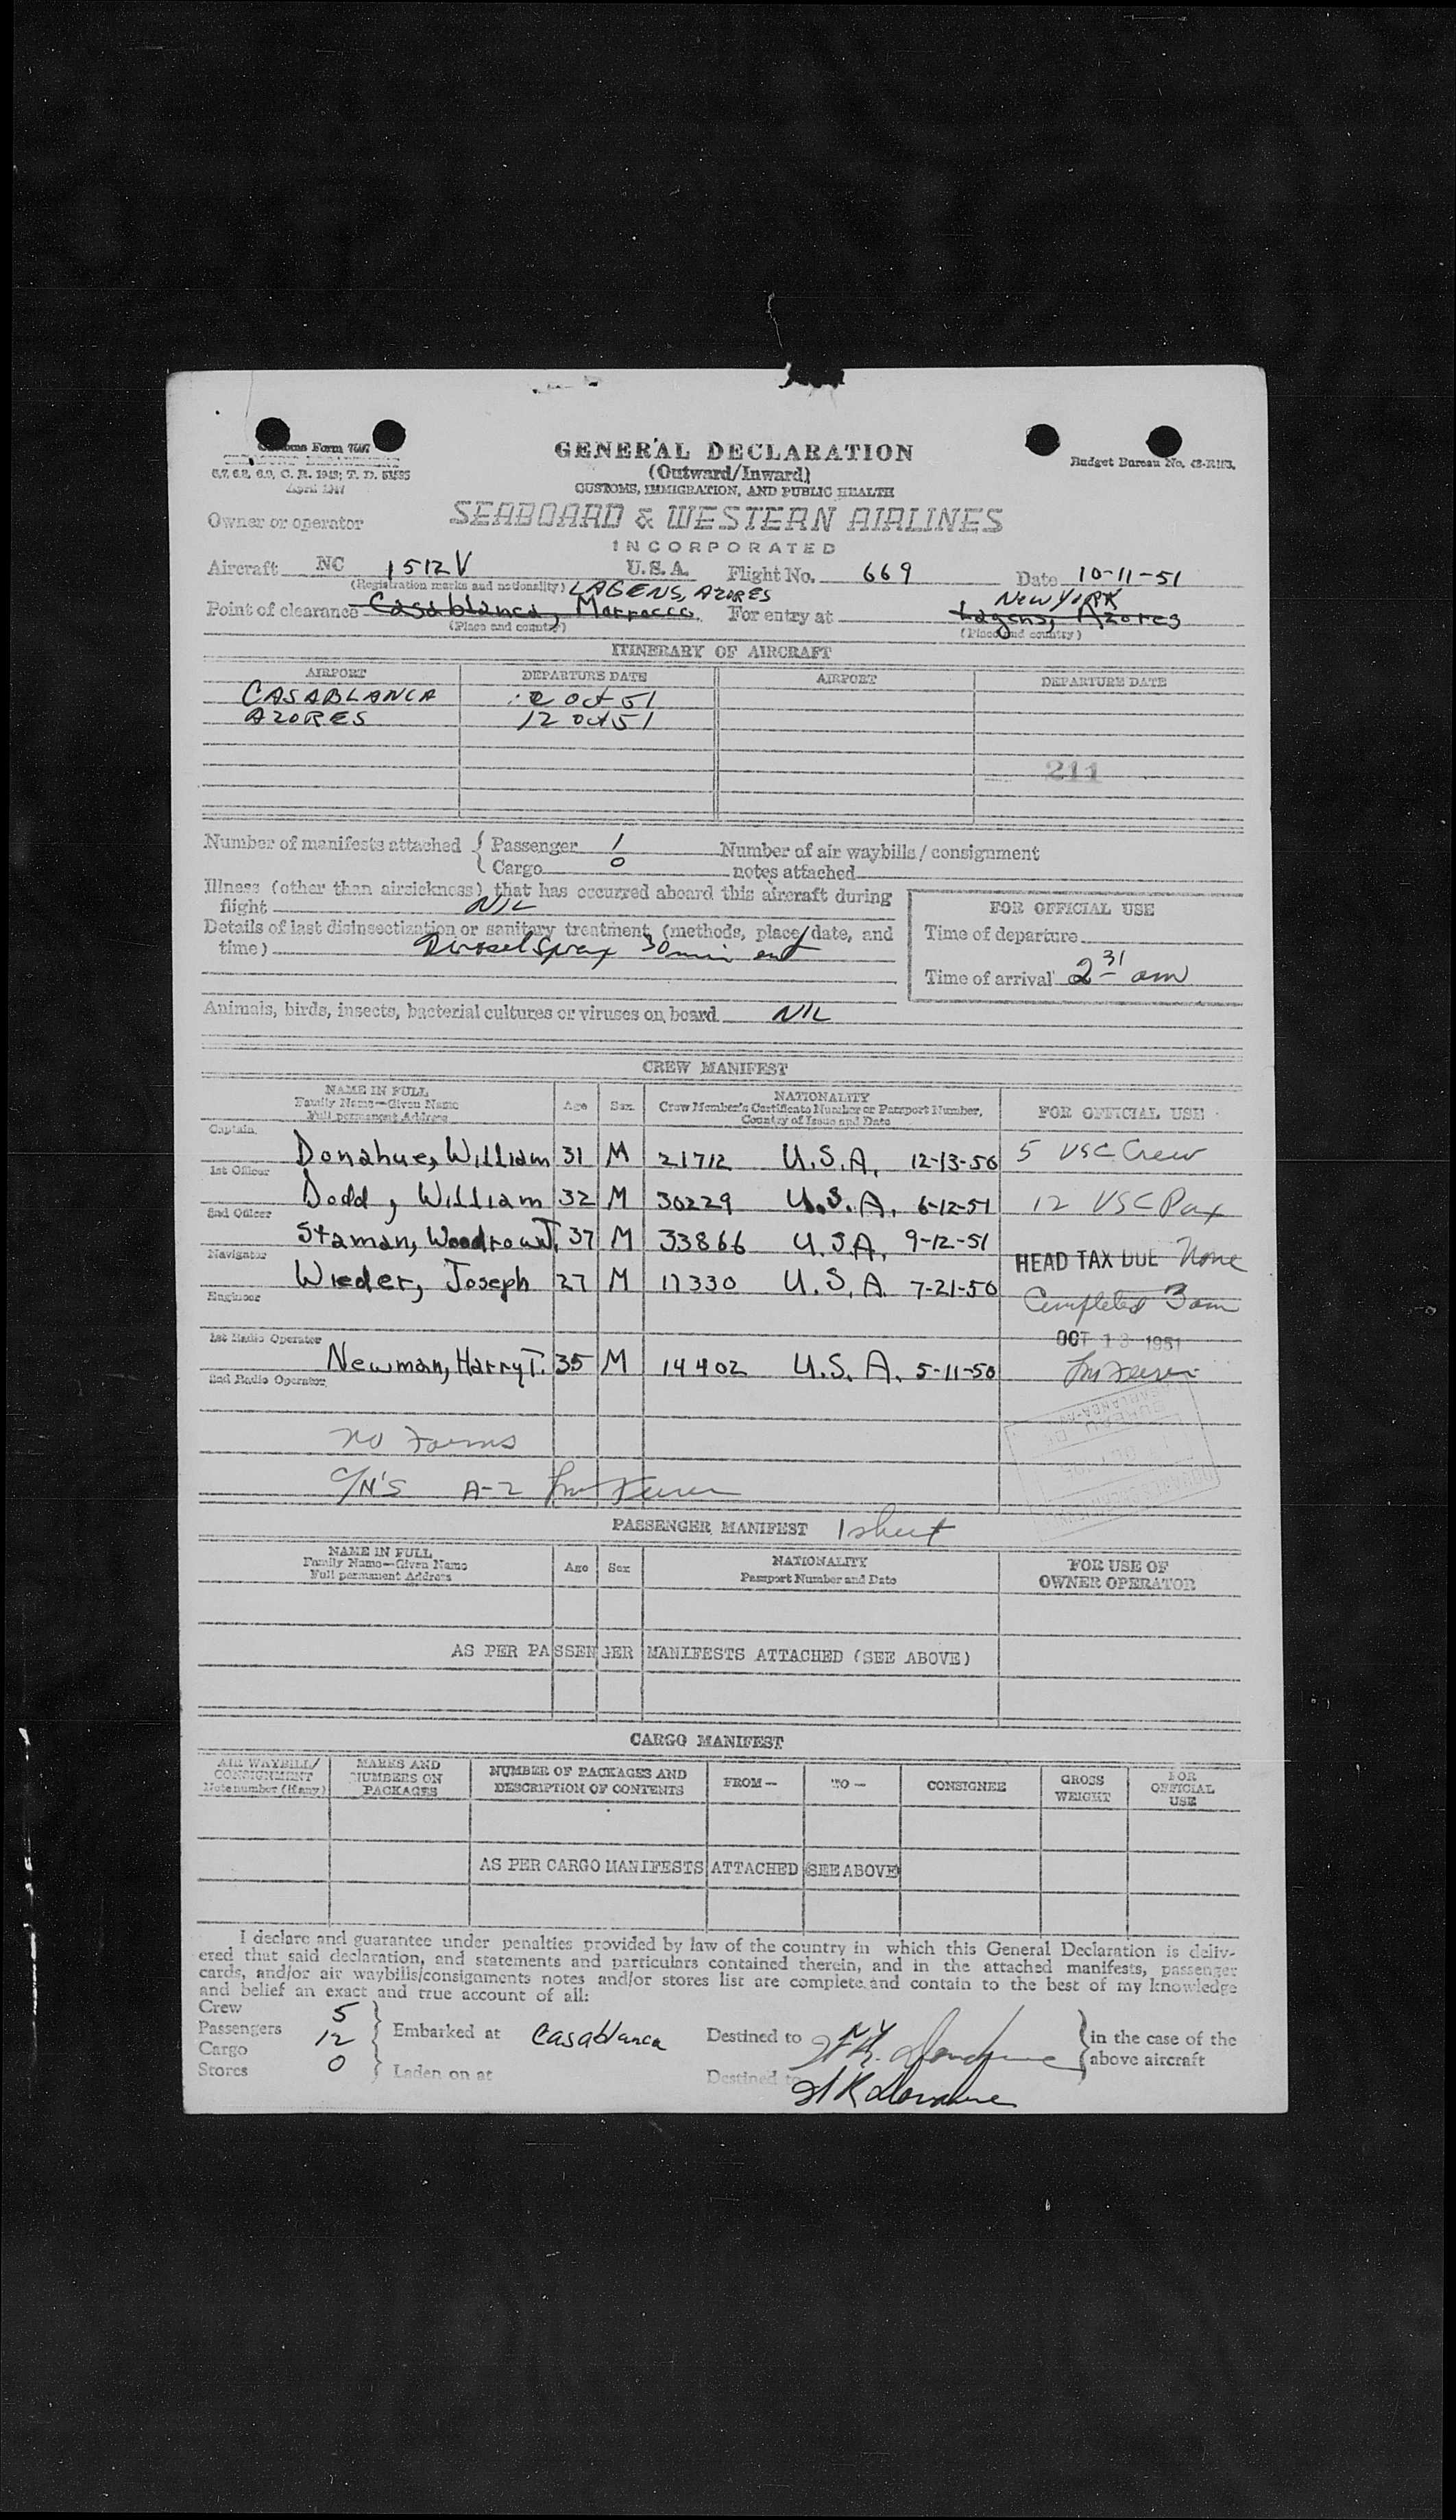 Customs Form 7507
6.7, 6.8, 6.9, C. R. 1943; T. D.
April 1947
GENERAL DECLARATION
(Outward/Inward)
CUSTOMS, IMMIGRATION, AND PUBLIC HEALTH
Budget Bureau No.
Owner or operator SEABOARD & WESTERN AIRLINES
INCORPORATED
Aircraft NC 1512V U.S.A. Flight No. 669 Date 10-11-51
(Registration marks and nationality) LAGENS, AZORES NEW YORK
Point of clearance Casablanca, Morrocco. For entry at Lagens, Azores
(Place and country) (Place and country)
ITINERARY OF AIRCRAFT
AIRPORT DEPARTURE DATE AIRPORT DEPARTURE DATE
CASABLANCA Oct 51
AZORES 12 Oct 51
211
Number of manifests attached { Passenger 1 Number of air waybills / consignment
{ Cargo 0 notes attached
Illness (other than airsickness) that has occurred aboard this aircraft during
flight NIL
FOR OFFICIAL USE
Details of last disinsectization or sanitary treatment (methods, place, date, and
time) spray 30 min
Time of departure
Time of arrival 2 31 am
Animals, birds, insects, bacterial cultures or viruses on board NIL
CREW MANIFEST
NAME IN FULL
Family Name—Given Name
Full permanent Address
Age Sex
NATIONALITY
Crew Member's Certificate Number or Passport Number,
Country of Issue and Date
FOR OFFICIAL USE
Captain
Donahue, William 31 M 21712 U.S.A. 12-13-50 5 USC Crew
1st Officer
Dodd, William 32 M 30229 U.S.A. 6-12-51 12 USC Pax
2nd Officer
Staman, Woodrow J. 37 M 33866 U.S.A. 9-12-51
Navigator
HEAD TAX DUE None
Wieder, Joseph 27 M 17330 U.S.A. 7-21-50
Engineer
Completed 3 am
1st Radio Operator
OCT 13 1951
Newman, Harry T. 35 M 14402 U.S.A. 5-11-50
2nd Radio Operator
no Forms
C/N'S A-2
PASSENGER MANIFEST 1 sheet
NAME IN FULL
Family Name—Given Name
Full permanent Address
Age Sex
NATIONALITY
Passport Number and Date
FOR USE OF
OWNER OPERATOR
AS PER PASSENGER MANIFESTS ATTACHED (SEE ABOVE)
CARGO MANIFEST
AIR WAYBILL/
CONSIGNMENT
Note number (If any)
MARKS AND
NUMBERS ON
PACKAGES
NUMBER OF PACKAGES AND
DESCRIPTION OF CONTENTS
FROM—
TO—
CONSIGNEE
GROSS
WEIGHT
FOR
OFFICIAL
USE
AS PER CARGO MANIFESTS ATTACHED (SEE ABOVE)
I declare and guarantee under penalties provided by law of the country in which this General Declaration is deliv-
ered that said declaration, and statements and particulars contained therein, and in the attached manifests, passenger
cards, and/or air waybills/consignments notes and/or stores list are complete and contain to the best of my knowledge
and belief an exact and true account of all:
Crew 5
Passengers 12 } Embarked at Casablanca Destined to N Y } in the case of the
Cargo above aircraft
Stores 0 } Laden on at Destined to